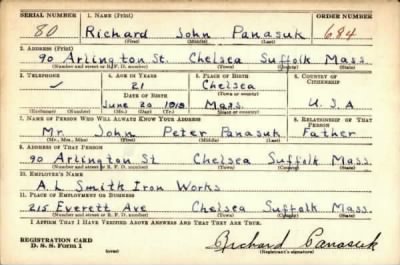 SERIAL NUMBER 1. NAME (Print) ORDER NUMBER
80 Richard John Panasuk 684
(First) (Middle) (Last)
2. ADDRESS (Print)
90 Arlington St. Chelsea Suffolk Mass.
(Number and street or R. F. D. number) (Town) (County) (State)
3. TELEPHONE 4. AGE IN YEARS 5. PLACE OF BIRTH 6. COUNTRY OF CITIZENSHIP
✓ 21 Chelsea
DATE OF BIRTH (Town or county)
June 20 Mass. U.S.A
(Exchange) (Number) (Mo.) (Day) (Yr.) (State or country)
7. NAME OF PERSON WHO WILL ALWAYS KNOW YOUR ADDRESS 8. RELATIONSHIP OF THAT PERSON
Mr. John Peter Panasuk Father
(Mr., Mrs., Miss) (First) (Middle) (Last)
9. ADDRESS OF THAT PERSON
90 Arlington St Chelsea Suffolk Mass.
(Number and street or R. F. D. number) (Town) (County) (State)
10. EMPLOYER'S NAME
A.L Smith Iron Works
11. PLACE OF EMPLOYMENT OR BUSINESS
215 Everett Ave Chelsea Suffolk Mass.
(Number and street or R. F. D. number) (Town) (County) (State)
I AFFIRM THAT I HAVE VERIFIED ABOVE ANSWERS AND THAT THEY ARE TRUE.
REGISTRATION CARD
D. S. S. Form 1 (over) Richard Panasuk
(Registrant's signature)